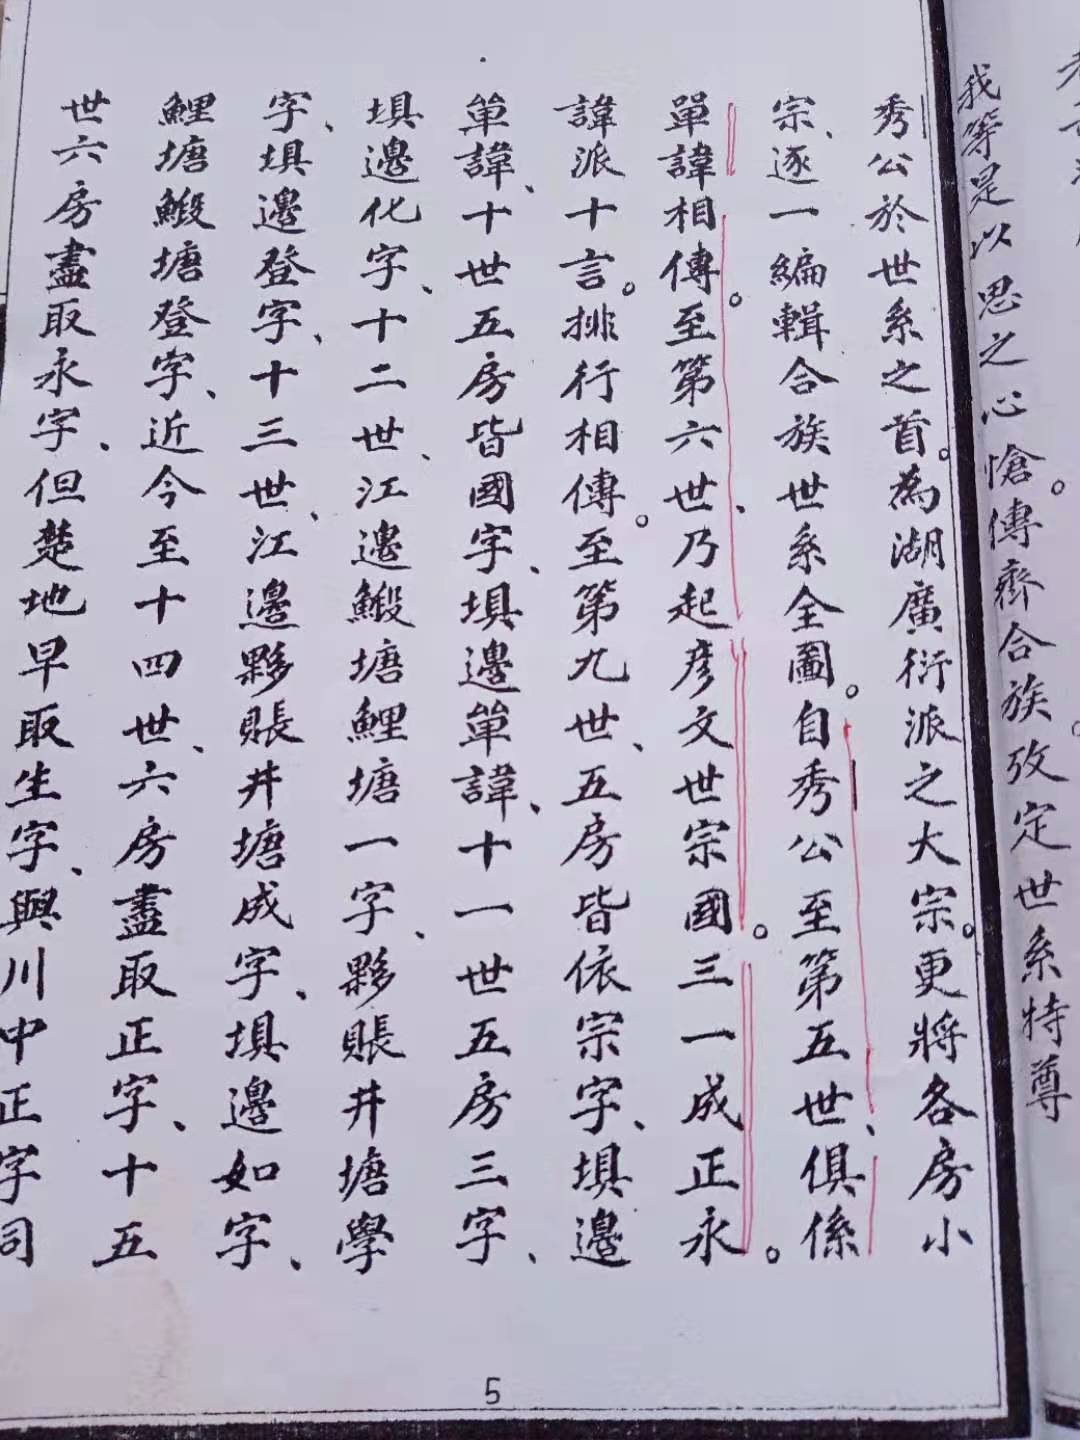 我等是以思之心愴傳齊合族攷定世系特尊
秀公於世系之首。為湖廣衍派之大宗。更將各房小
宗、逐一編輯合族世系全圖。自秀公至第五世、俱係
單諱相傳。至第六世、乃起彥文世宗國。三一成正永。
諱派十言。排行相傳。至第九世、五房皆依宗字、埧邊
单諱、十世五房皆國字、埧邊单諱、十一世五房三字、
埧邊化字、十二世、江邊鰕塘鯉塘一字、夥賬井塘學
字、埧邊登字、十三世、江邊夥賬井塘成字、埧邊如字、
鯉塘鰕塘登字、近今至十四世、六房盡取正字、十五
世六房盡取永字、但楚地早取生字、與川中正字同
5